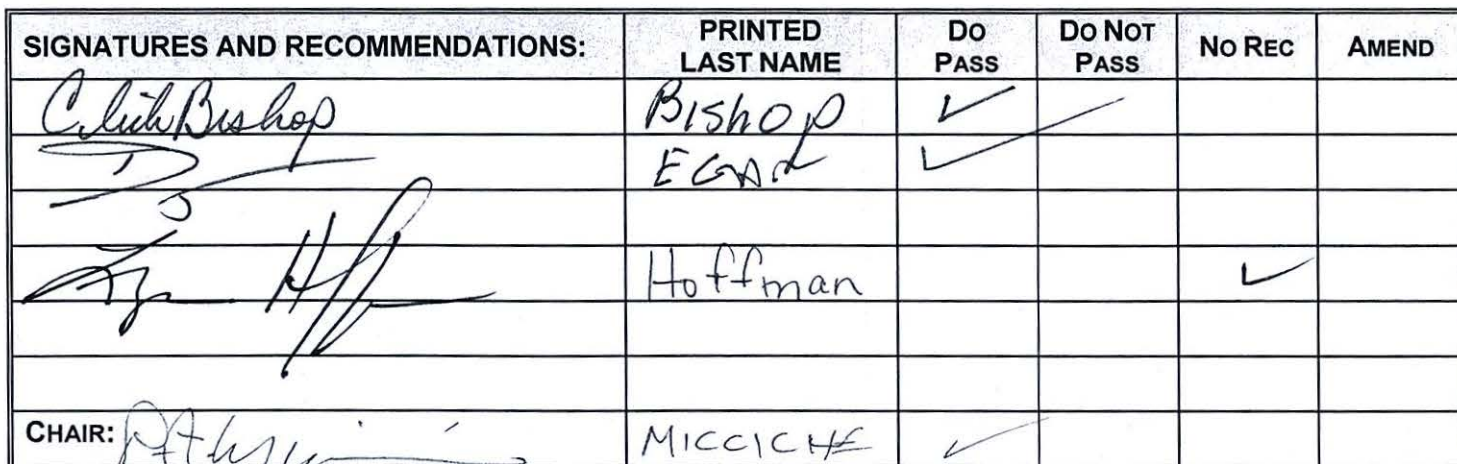 SIGNATURES AND RECOMMENDATIONS: PRINTED LAST NAME DO PASS DO NOT PASS NO REC AMEND
Bishop BISHOP ✓
EGAN ✓
Hoffman ✓
CHAIR: MICCICHE ✓